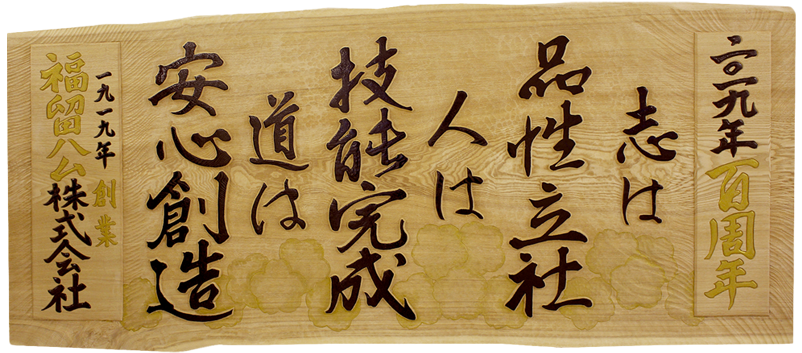 二〇一九年百周年
志は
品性立社
人は
技能完成
道は
安心創造
一九一九年創業
福留ハム株式会社